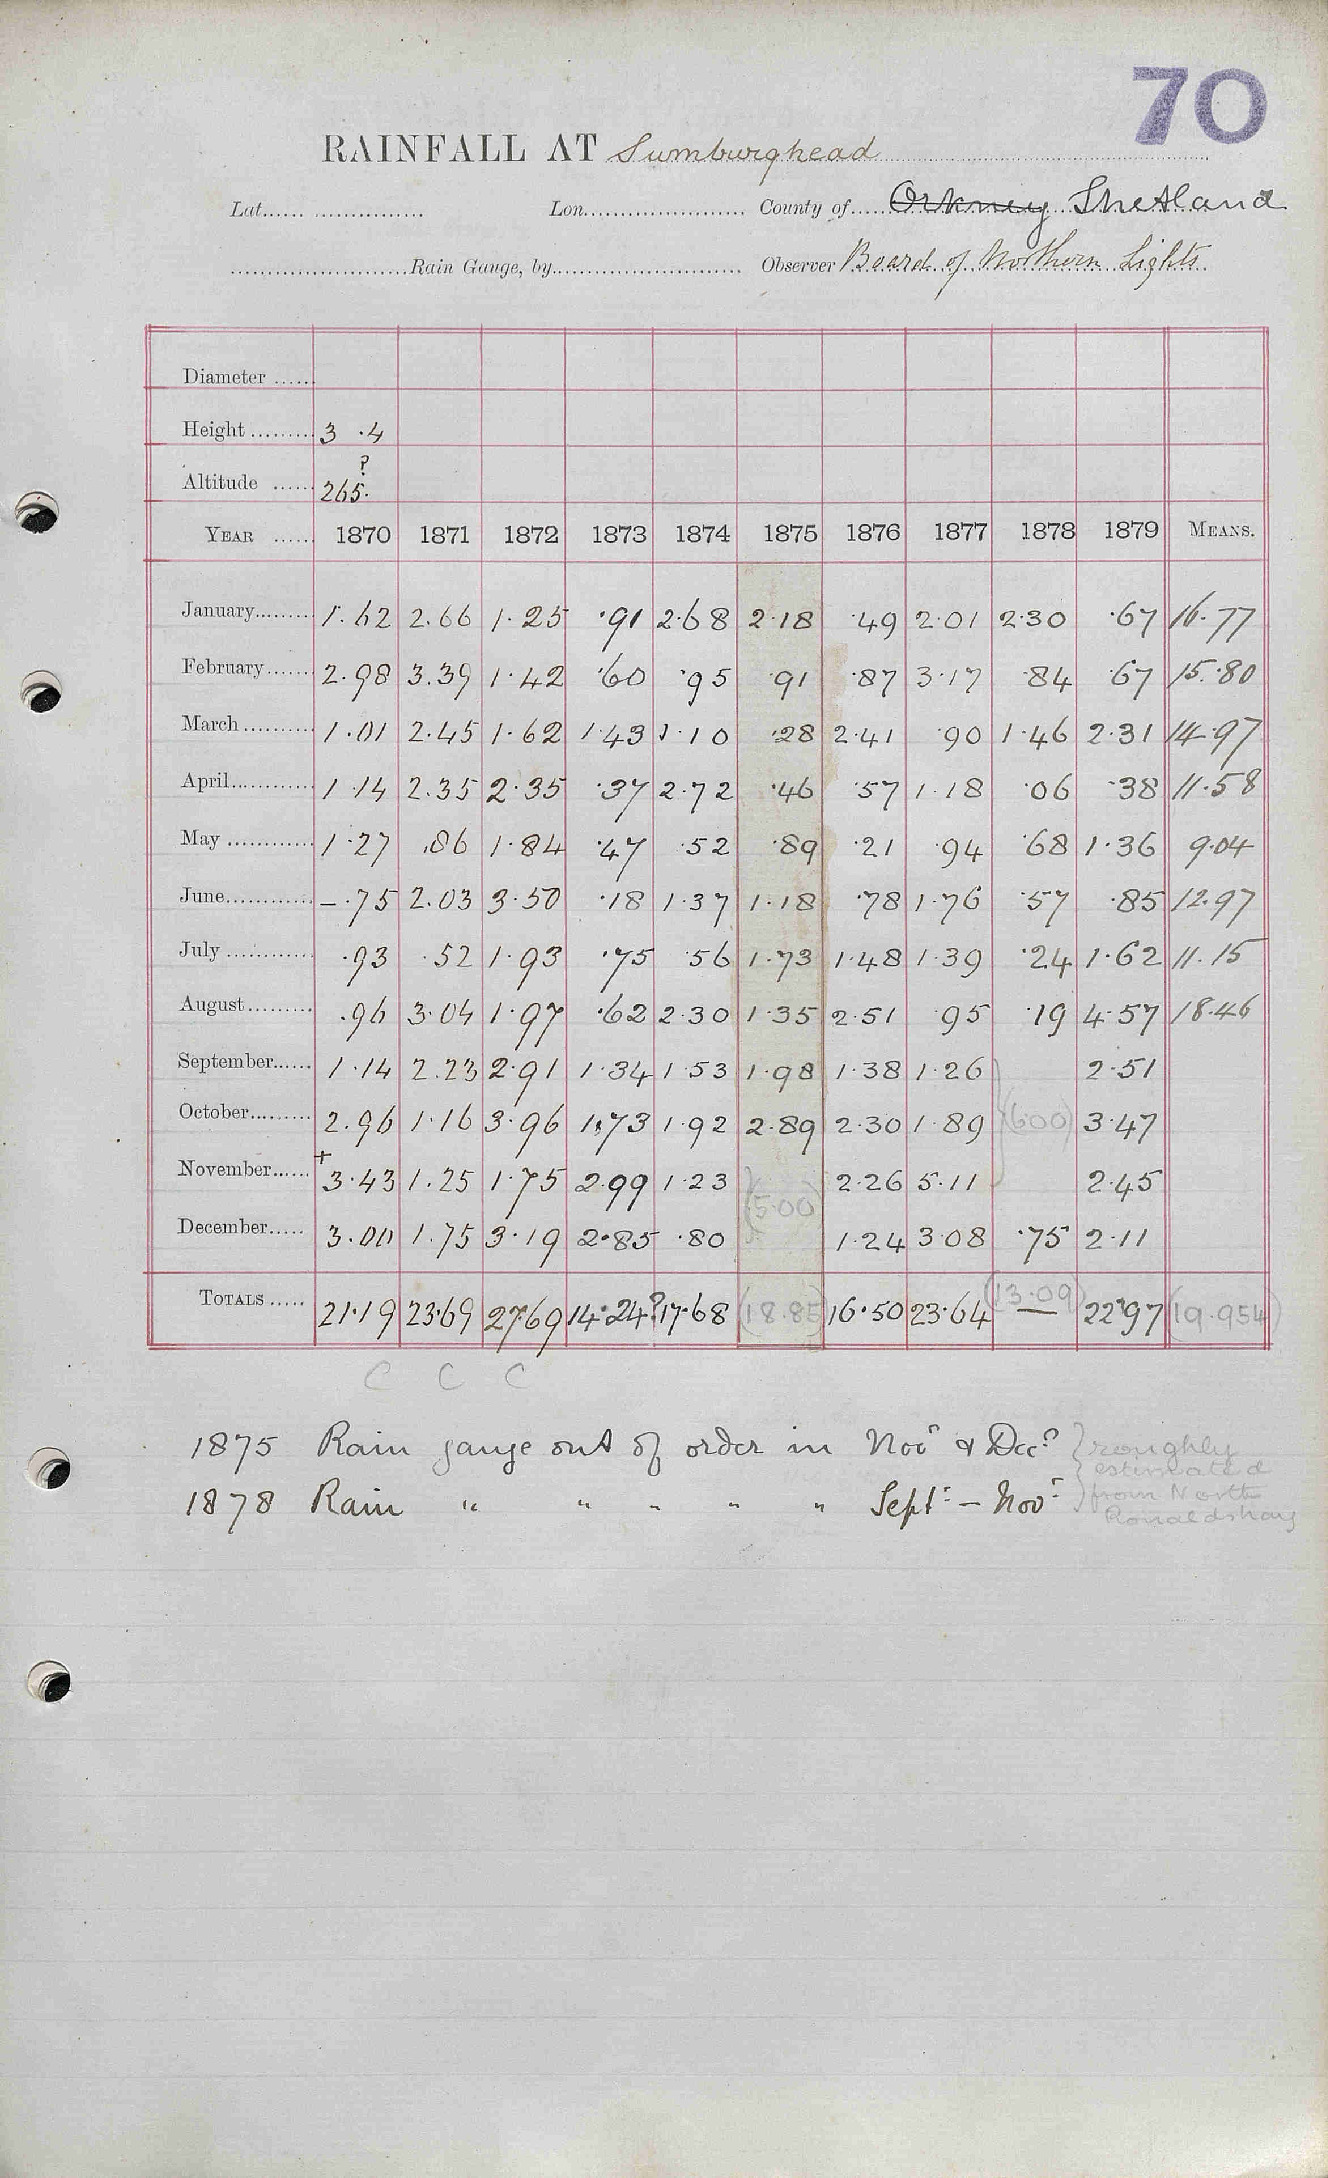 70
RAINFALL AT Sumburghead
Lat. Lon. County of Orkney Shetland
Rain Gauge, by Observer Board of Northern Lights
Diameter
Height 3 .4
Altitude 265. ?
YEAR 1870 1871 1872 1873 1874 1875 1876 1877 1878 1879 MEANS.
January 1.62 2.66 1.25 .91 2.68 2.18 .49 2.01 2.30 .67 16.77
February 2.98 3.39 1.42 .60 .95 .91 .87 3.17 .84 .67 15.80
March 1.01 2.45 1.62 1.43 1.10 .28 2.41 .90 1.46 2.31 14.97
April 1.14 2.35 2.35 .37 2.72 .46 .57 1.18 .06 .38 11.58
May 1.27 .86 1.84 .47 .52 .89 .21 .94 .68 1.36 9.04
June -.75 2.03 3.50 .18 1.37 1.18 .78 1.76 .57 .85 12.97
July .93 .52 1.93 .75 .56 1.73 1.48 1.39 .24 1.62 11.15
August .96 3.04 1.97 .62 2.30 1.35 2.51 .95 .19 4.57 18.46
September 1.14 2.23 2.91 1.34 1.53 1.98 1.38 1.26 2.51
October 2.96 1.16 3.96 1.73 1.92 2.89 2.30 1.89 (6.00) 3.47
November + 3.43 1.25 1.75 2.99 1.23 (5.00) 2.26 5.11 2.45
December 3.00 1.75 3.19 2.85 .80 1.24 3.08 .75 2.11
TOTALS 21.19 23.69 27.69 14.24? 17.68 (18.85) 16.50 23.64 (13.09) — 22.97 (19.954)
C C C
1875 Rain gauge out of order in Novr & Decr } roughly
estimated
1878 Rain " " " " " Sept: – Novr } from North
Ronaldshay